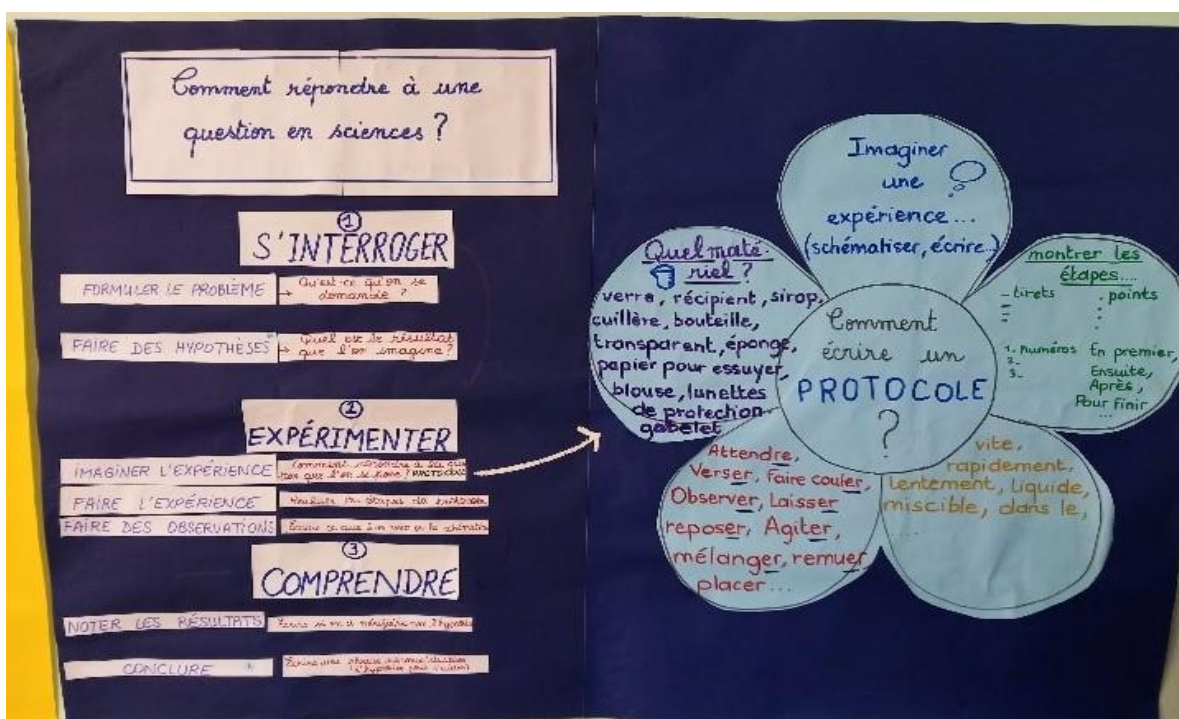 Comment répondre à une
question en sciences ?
1
S'INTERROGER
FORMULER LE PROBLÈME
→ Qu'est-ce qu'on se
demande ?
FAIRE DES HYPOTHÈSES
→ Quel est le résultat
que l'on imagine ?
2
EXPÉRIMENTER
IMAGINER L'EXPÉRIENCE
Comment répondre à la
que l'on se pose ?
FAIRE L'EXPÉRIENCE
étapes du protocole
FAIRE DES OBSERVATIONS
Écrire ce que l'on voit
3
COMPRENDRE
NOTER LES RÉSULTATS
Écrire si
CONCLURE
Écrire une phrase
Imaginer
une
expérience...
(schématiser, écrire...)
Quel maté-
riel ?
verre, récipient, sirop,
cuillère, bouteille,
transparent, éponge,
papier pour essuyer,
blouse, lunettes
de protection
gobelet
montrer les
étapes....
- tirets
. points
1. numéros
2-
3-
En premier,
Ensuite,
Après,
Pour finir
...
Comment
écrire un
PROTOCOLE
?
Attendre,
Verser, faire couler,
Observer, Laisser
reposer, Agiter,
mélanger, remuer,
placer...
vite,
rapidement,
lentement, liquide,
miscible, dans le,
....